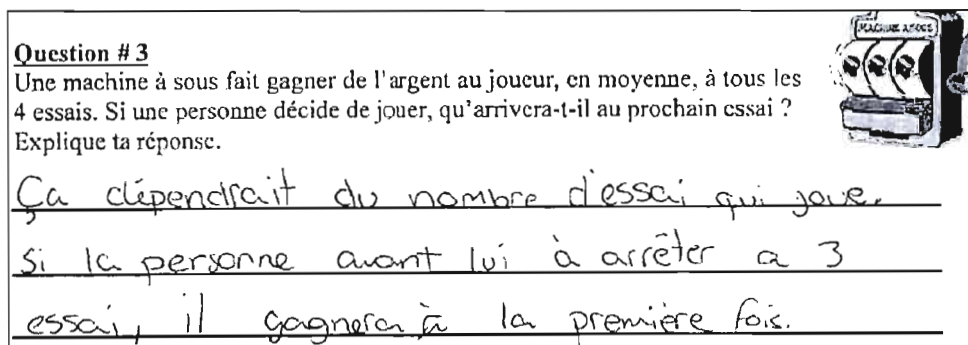 MACHINE À SOUS
Question # 3
Une machine à sous fait gagner de l'argent au joueur, en moyenne, à tous les
4 essais. Si une personne décide de jouer, qu'arrivera-t-il au prochain essai ?
Explique ta réponse.
Ça dépendrait du nombre d'essai qui joue.
Si la personne avant lui à arrêter a 3
essai, il gagnera à la première fois.